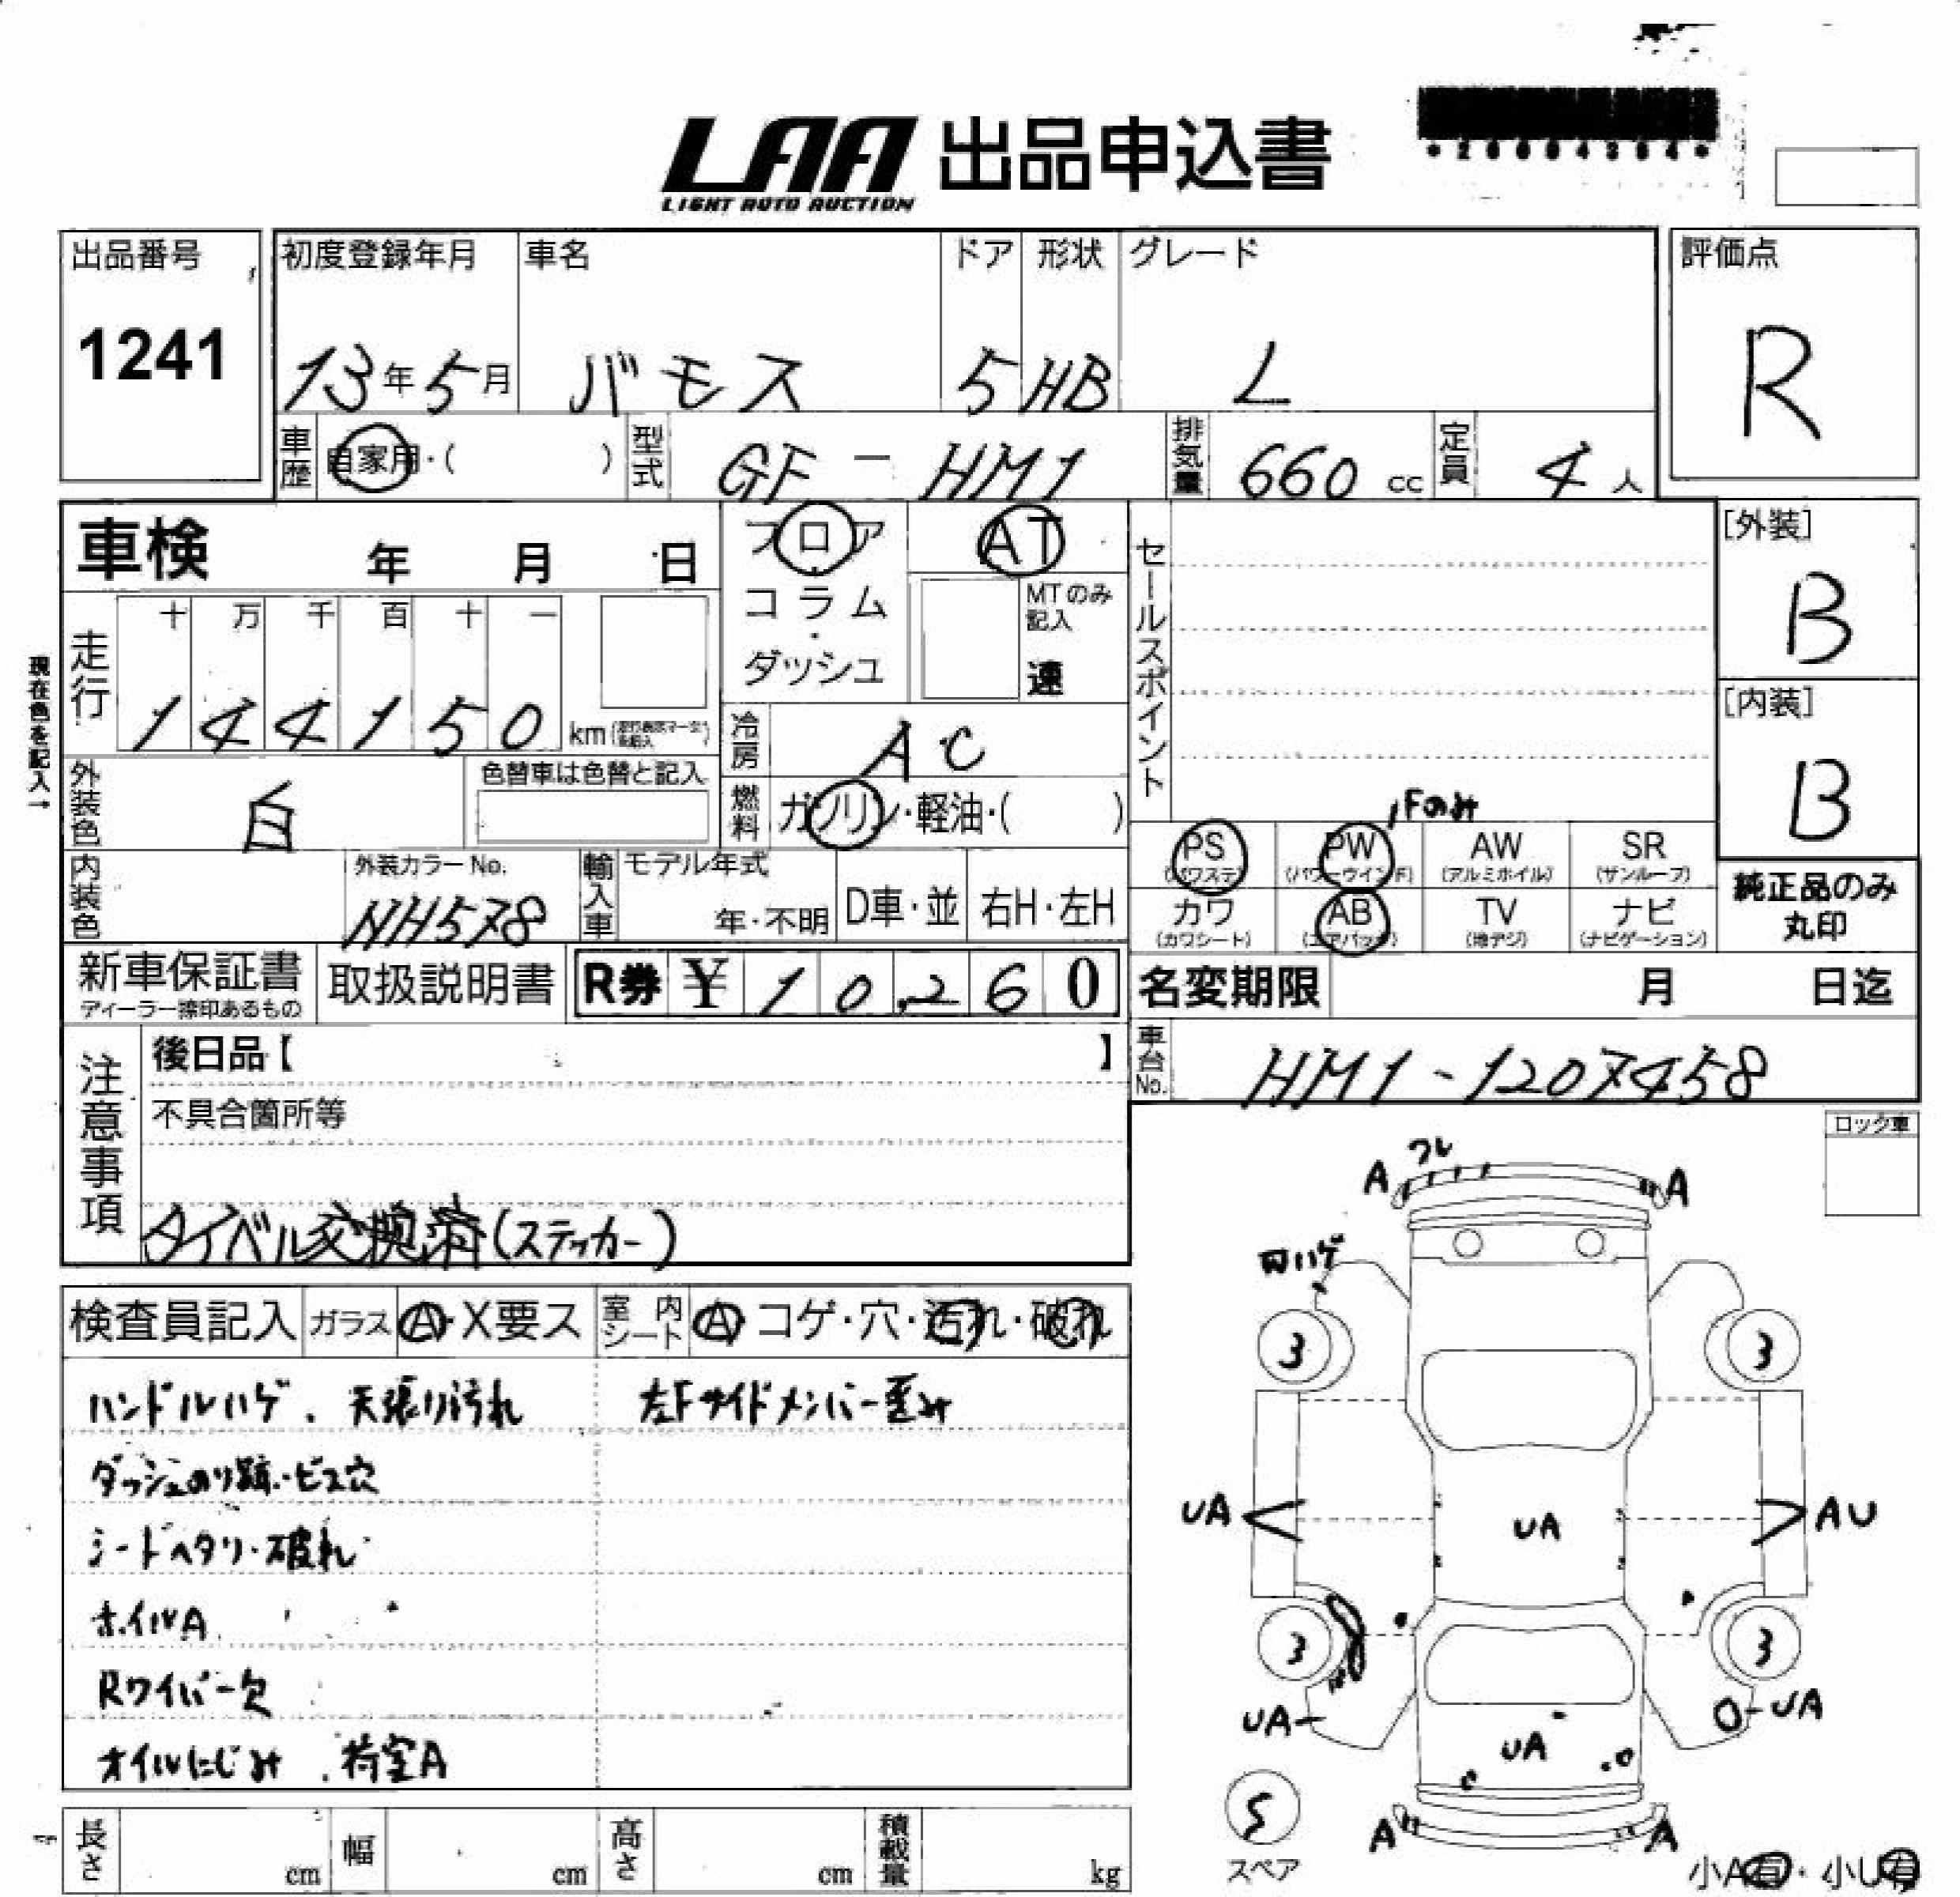 LAA 出品申込書
LIGHT AUTO AUCTION
*20004304*
出品番号
1241
初度登録年月
13年5月
車名
バモス
ドア
5
形状
HB
グレード
L
評価点
R
車歴 自家用・( )
型式 GF-HM1
排気量 660 cc
定員 4 人
車検 年 月 日
フロア
コラム
・
ダッシュ
AT
MTのみ
記入
速
セールスポイント
[外装]
B
[内装]
B
現在色を記入→
走行
十 万 千 百 十 一
1 4 4 1 5 0 km
冷房 AC
外装色 白
色替車は色替と記入
燃料 ガソリン・軽油・( )
Fのみ
PS PW AW SR
(パワステ) (パワーウインド) (アルミホイル) (サンルーフ)
カワ AB TV ナビ
(カワシート) (エアバッグ) (地デジ) (ナビゲーション)
純正品のみ
丸印
内装色
外装カラーNo.
NH578
輸入車
モデル年式
年・不明
D車・並
右H・左H
新車保証書
ディーラー捺印あるもの
取扱説明書
R券 ¥ 10,260
名変期限 月 日迄
車台No. HM1-1207458
注意事項
後日品【 】
不具合箇所等
タイベル交換済(ステッカー)
ロック車
検査員記入 ガラス A・X要ス 室内シート A コゲ・穴・汚れ・破れ
ハンドルハゲ、天張り汚れ
左Fサイドメンバー歪み
ダッシュのり跡・ビス穴
シートヘタリ・破れ
ホイルA
Rワイパー欠
オイルにじみ、荷室A
A ワレ A
ハゲ
3 3
UA UA AU
3 3
UA UA UA
5
スペア
A A
小A有・小U有
長さ cm 幅 cm 高さ cm 積載量 kg